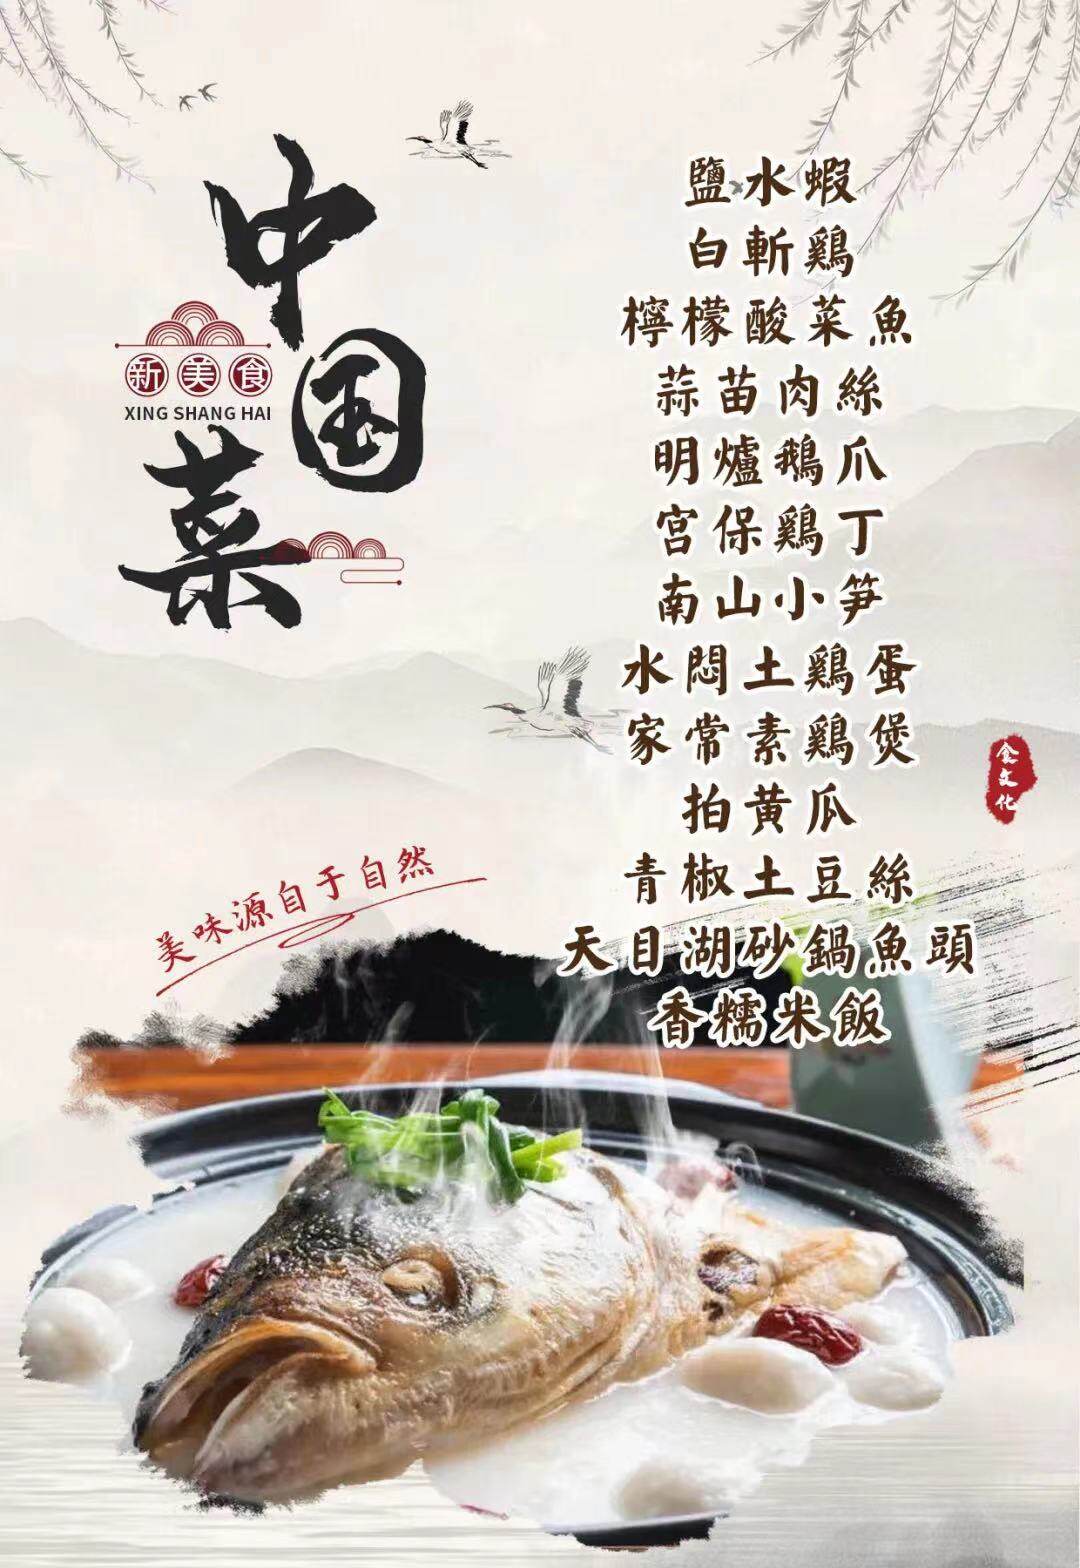 中国菜
新美食
XING SHANG HAI
鹽水蝦
白斬鷄
檸檬酸菜魚
蒜苗肉絲
明爐鵝爪
宫保鷄丁
南山小笋
水悶土鷄蛋
家常素鷄煲
拍黄瓜
青椒土豆絲
天目湖砂鍋魚頭
香糯米飯
食文化
美味源自于自然